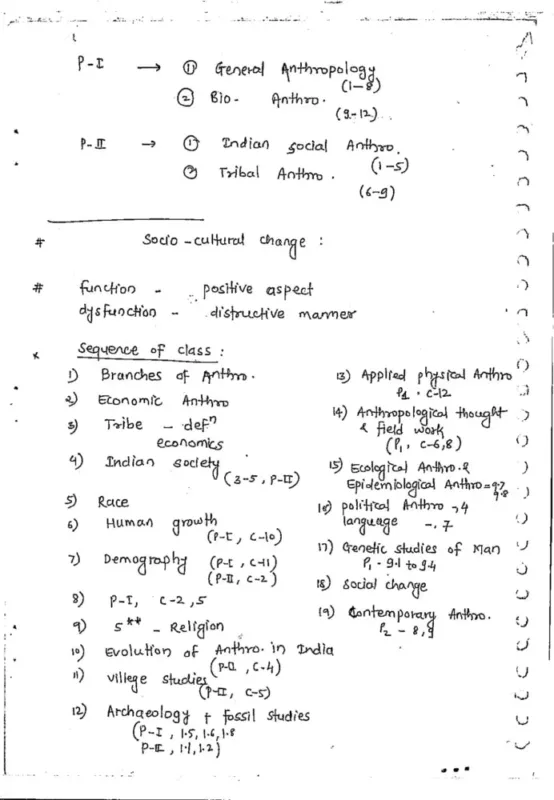 P-I → ① General Anthropology
(1-8)
② Bio- Anthro.
(9-12)
P-II → ① Indian social Anthro.
(1-5)
② Tribal Anthro.
(6-9)
# Socio-cultural change :
# function - positive aspect
dysfunction - distructive manner
* Sequence of class :
1) Branches of Anthro.
2) Economic Anthro
3) Tribe - defⁿ
economics
4) Indian society
(3-5, P-II)
5) Race
6) Human growth
(P-I, C-10)
7) Demography (P-I, C-11)
(P-II, C-2)
8) P-I, C-2, 5
9) 5** - Religion
10) Evolution of Anthro. in India
(P-II, C-4)
11) village studies
(P-II, C-5)
12) Archaeology + fossil studies
(P-I, 1.5, 1.6, 1.8
P-II, 1.1, 1.2)
13) Applied physical Anthro
P1 · C-12
14) Anthropological thought
& field work
(P1, C-6,8)
15) Ecological Anthro. &
Epidemiological Anthro = 9.7
9.8
16) political Anthro → 4
language -. 7
17) Genetic studies of Man
P1 - 9.1 to 9.4
18) Social change
19) Contemporary Anthro.
P2 - 8,9